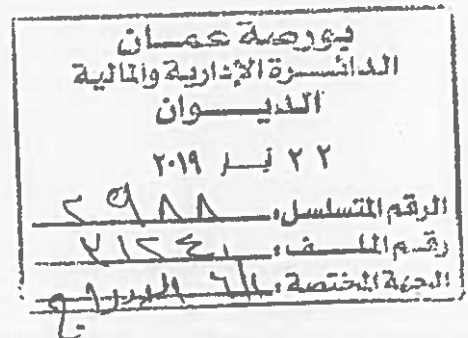 بورصة عمان
الدائرة الإدارية والمالية
الديوان
٢٢ نيـ ٢٠١٩
الرقم المتسلسل: ٢٩٨٨
رقم الملف:
الجهة المختصة: